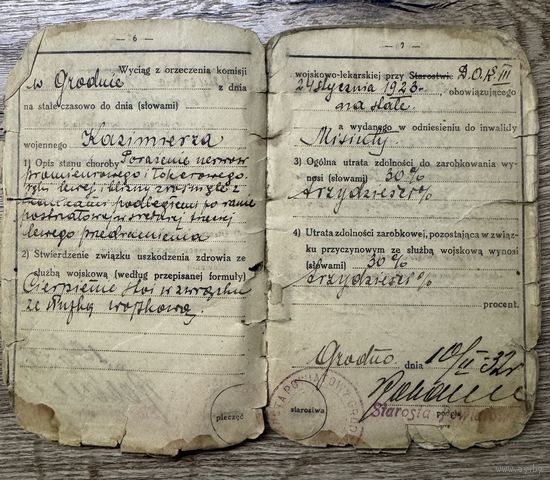 — 6 —
Wyciąg z orzeczenia komisji
w Grodnie z dnia
na stałe-czasowo do dnia (słowami)
wojennego Kazimierza
1) Opis stanu choroby Porażenie nerwów
promieniowego i łokciowego
ręki lewej, blizny zrośnięte z
podległemi po ranie
postrzałowej w
lewego przedramienia
2) Stwierdzenie związku uszkodzenia zdrowia ze
służbą wojskową (według przepisanej formuły)
Cierpienie stoi w związku
ze służbą wojskową.
pieczęć
— 7 —
wojskowo-lekarskiej przy Starostwie D.O.K III
24 stycznia 1923 r., obowiązującego
na stałe
a wydanego w odniesieniu do inwalidy
Misiuty
3) Ogólna utrata zdolności do zarobkowania wy-
nosi (słowami) 30%
trzydzieści %
4) Utrata zdolności zarobkowej, pozostająca w związ-
ku przyczynowym ze służbą wojskową wynosi
(słowami) 30%
trzydzieści %
procent.
Grodno, dnia 10/II-32 r
starostwa
Starosta